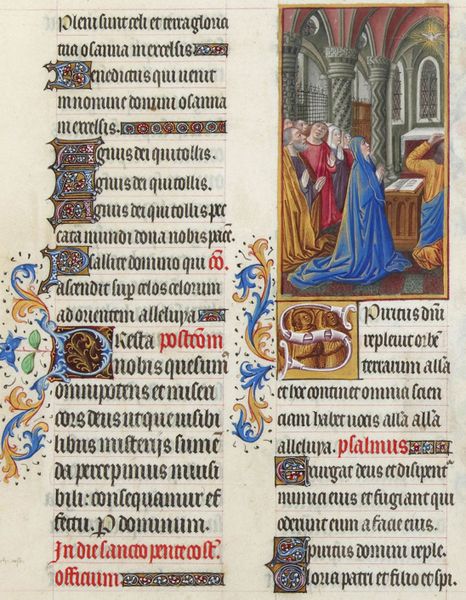 Pleni sunt celi et terra gloria
tua osanna in excelsis
Benedictus qui uenit
in nomine domini osanna
in excelsis.
Agnus dei qui tollis.
Agnus dei qui tollis.
Agnus dei qui tollis pec
cata mundi dona nobis pacē.
Psallite domino qui cō.
ascendit sup celos celorum
ad orientem alleluya.
Presta postcom
nobis quesum
omnipotens et miseri
cors deus ut que uisibi
libus misterijs sumē
da percepimus inuisi
bili: consequamur ef
fectu. P dominum.
In die sancto pentecost.
officium
Spiritus dni
repleuit orbē
terrarum alla
et hoc continet omnia scien
ciam habet uocis alla alla
alleluya. psalmus
Exurgat deus et dissipent
inimici eius et fugiant qui
oderunt eum a facie eius.
Spiritus domini reple.
Gloria patri et filio et spi.